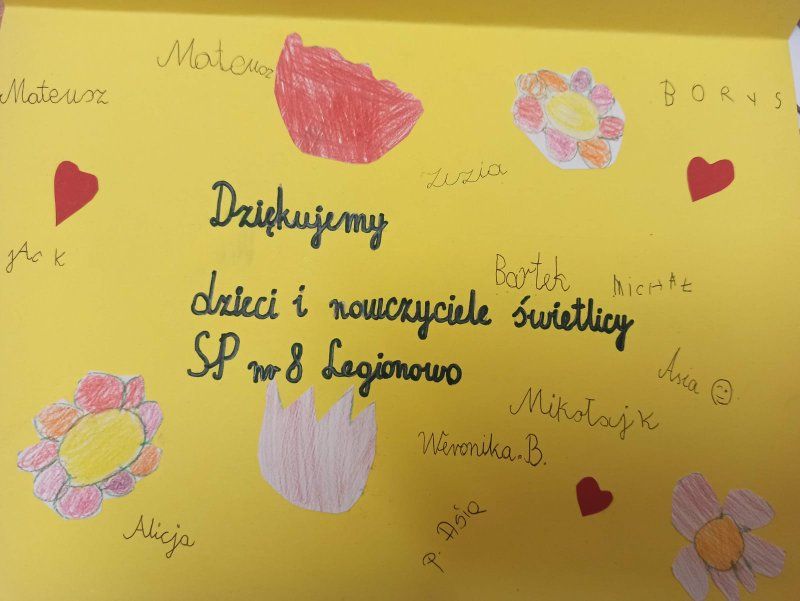 Mateusz
Mateusz
BORYS
Zuzia
Dziękujemy
jAcK
Bartek
MICHAŁ
dzieci i nauczyciele świetlicy
SP nr 8 Legionowo
Asia
Mikołaj K
Weronika.B.
p. Asia
Alicja